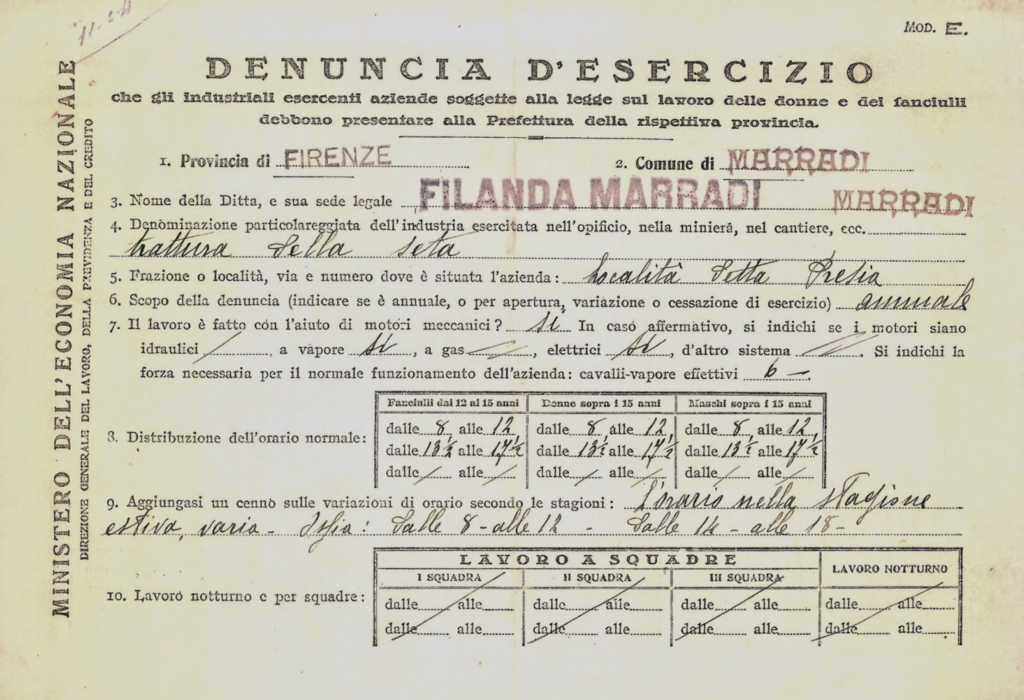 11-2-
MOD. E.
MINISTERO DELL'ECONOMIA NAZIONALE
DIREZIONE GENERALE DEL LAVORO, DELLA PREVIDENZA E DEL CREDITO
DENUNCIA D'ESERCIZIO
che gli industriali esercenti aziende soggette alla legge sul lavoro delle donne e dei fanciulli
debbono presentare alla Prefettura della rispettiva provincia.
1. Provincia di FIRENZE 2. Comune di MARRADI
3. Nome della Ditta, e sua sede legale FILANDA MARRADI MARRADI
4. Denominazione particolareggiata dell'industria esercitata nell'opificio, nella miniera, nel cantiere, ecc.
trattura della seta
5. Frazione o località, via e numero dove è situata l'azienda: Località detta
6. Scopo della denuncia (indicare se è annuale, o per apertura, variazione o cessazione di esercizio) annuale
7. Il lavoro è fatto con l'aiuto di motori meccanici? sì In caso affermativo, si indichi se i motori siano
idraulici /, a vapore sì, a gas /, elettrici sì, d'altro sistema /. Si indichi la
forza necessaria per il normale funzionamento dell'azienda: cavalli-vapore effettivi 6 -
8. Distribuzione dell'orario normale:
Fanciulli dai 12 ai 15 anni Donne sopra i 15 anni Maschi sopra i 15 anni
dalle 8 alle 12 dalle 8, alle 12, dalle 8, alle 12,
dalle 13½ alle 17½ dalle 13½ alle 17½ dalle 13½ alle 17½
dalle / alle / dalle / alle / dalle / alle /
9. Aggiungasi un cenno sulle variazioni di orario secondo le stagioni: L'orario nella stagione
estiva, varia - : dalle 8 - alle 12 - dalle 14 - alle 18 -
10. Lavoro notturno e per squadre:
LAVORO A SQUADRE LAVORO NOTTURNO
I SQUADRA II SQUADRA III SQUADRA
dalle alle dalle alle dalle alle dalle alle
dalle alle dalle alle dalle alle dalle alle